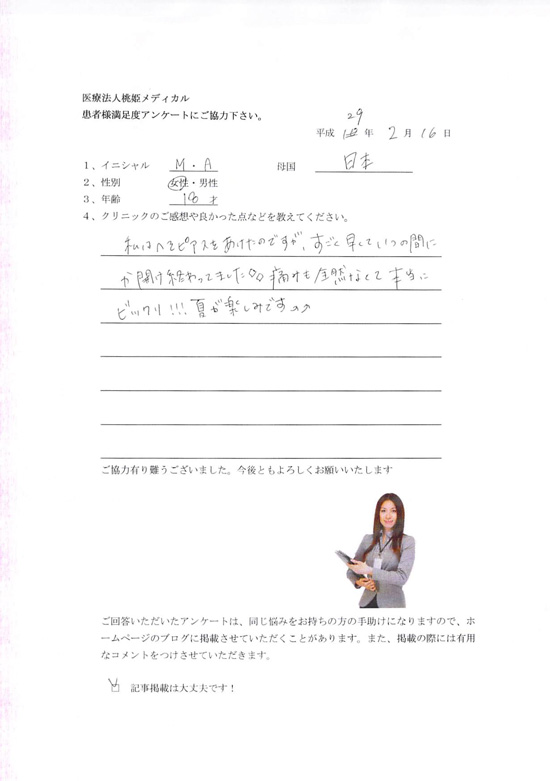 医療法人桃姫メディカル
患者様満足度アンケートにご協力下さい。
29
平成 年 2 月 16 日
1、イニシャル M・A 母国 日本
2、性別 女性・男性
3、年齢 18才
4、クリニックのご感想や良かった点などを教えてください。
私はヘソピアスをあけたのですが、すごく早くていつの間に
か開け終わってました 痛みも全然なくて本当に
ビックリ!!! 夏が楽しみです↗↗
ご協力有り難うございました。今後ともよろしくお願いいたします
ご回答いただいたアンケートは、同じ悩みをお持ちの方の手助けになりますので、ホ
ームページのブログに掲載させていただくことがあります。また、掲載の際には有用
なコメントをつけさせていただきます。
記事掲載は大丈夫です！